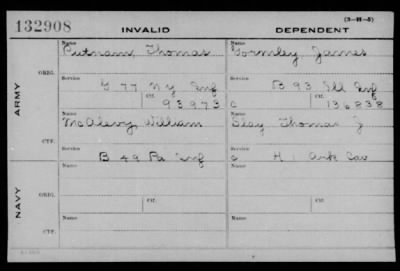 132908
INVALID
DEPENDENT
(3-H-5)
ARMY
ORIG.
Name
Putnam, Thomas
Name
Gormley James
Service
G 77 N Y Inf
Service
B 93 Ill Inf
Ctf.
93973
Ctf.
C 136838
CTF.
Name
McAlevy, William
Name
Slay Thomas J
Service
B 49 Pa Inf
Service
C H 1 Ark Cav
NAVY
ORIG.
Name
Ctf.
Name
Ctf.
CTF.
Name
Name